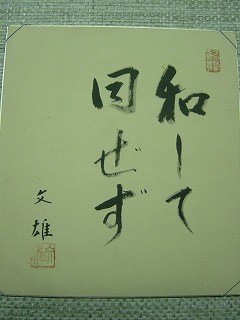 和して
同ぜず
文雄